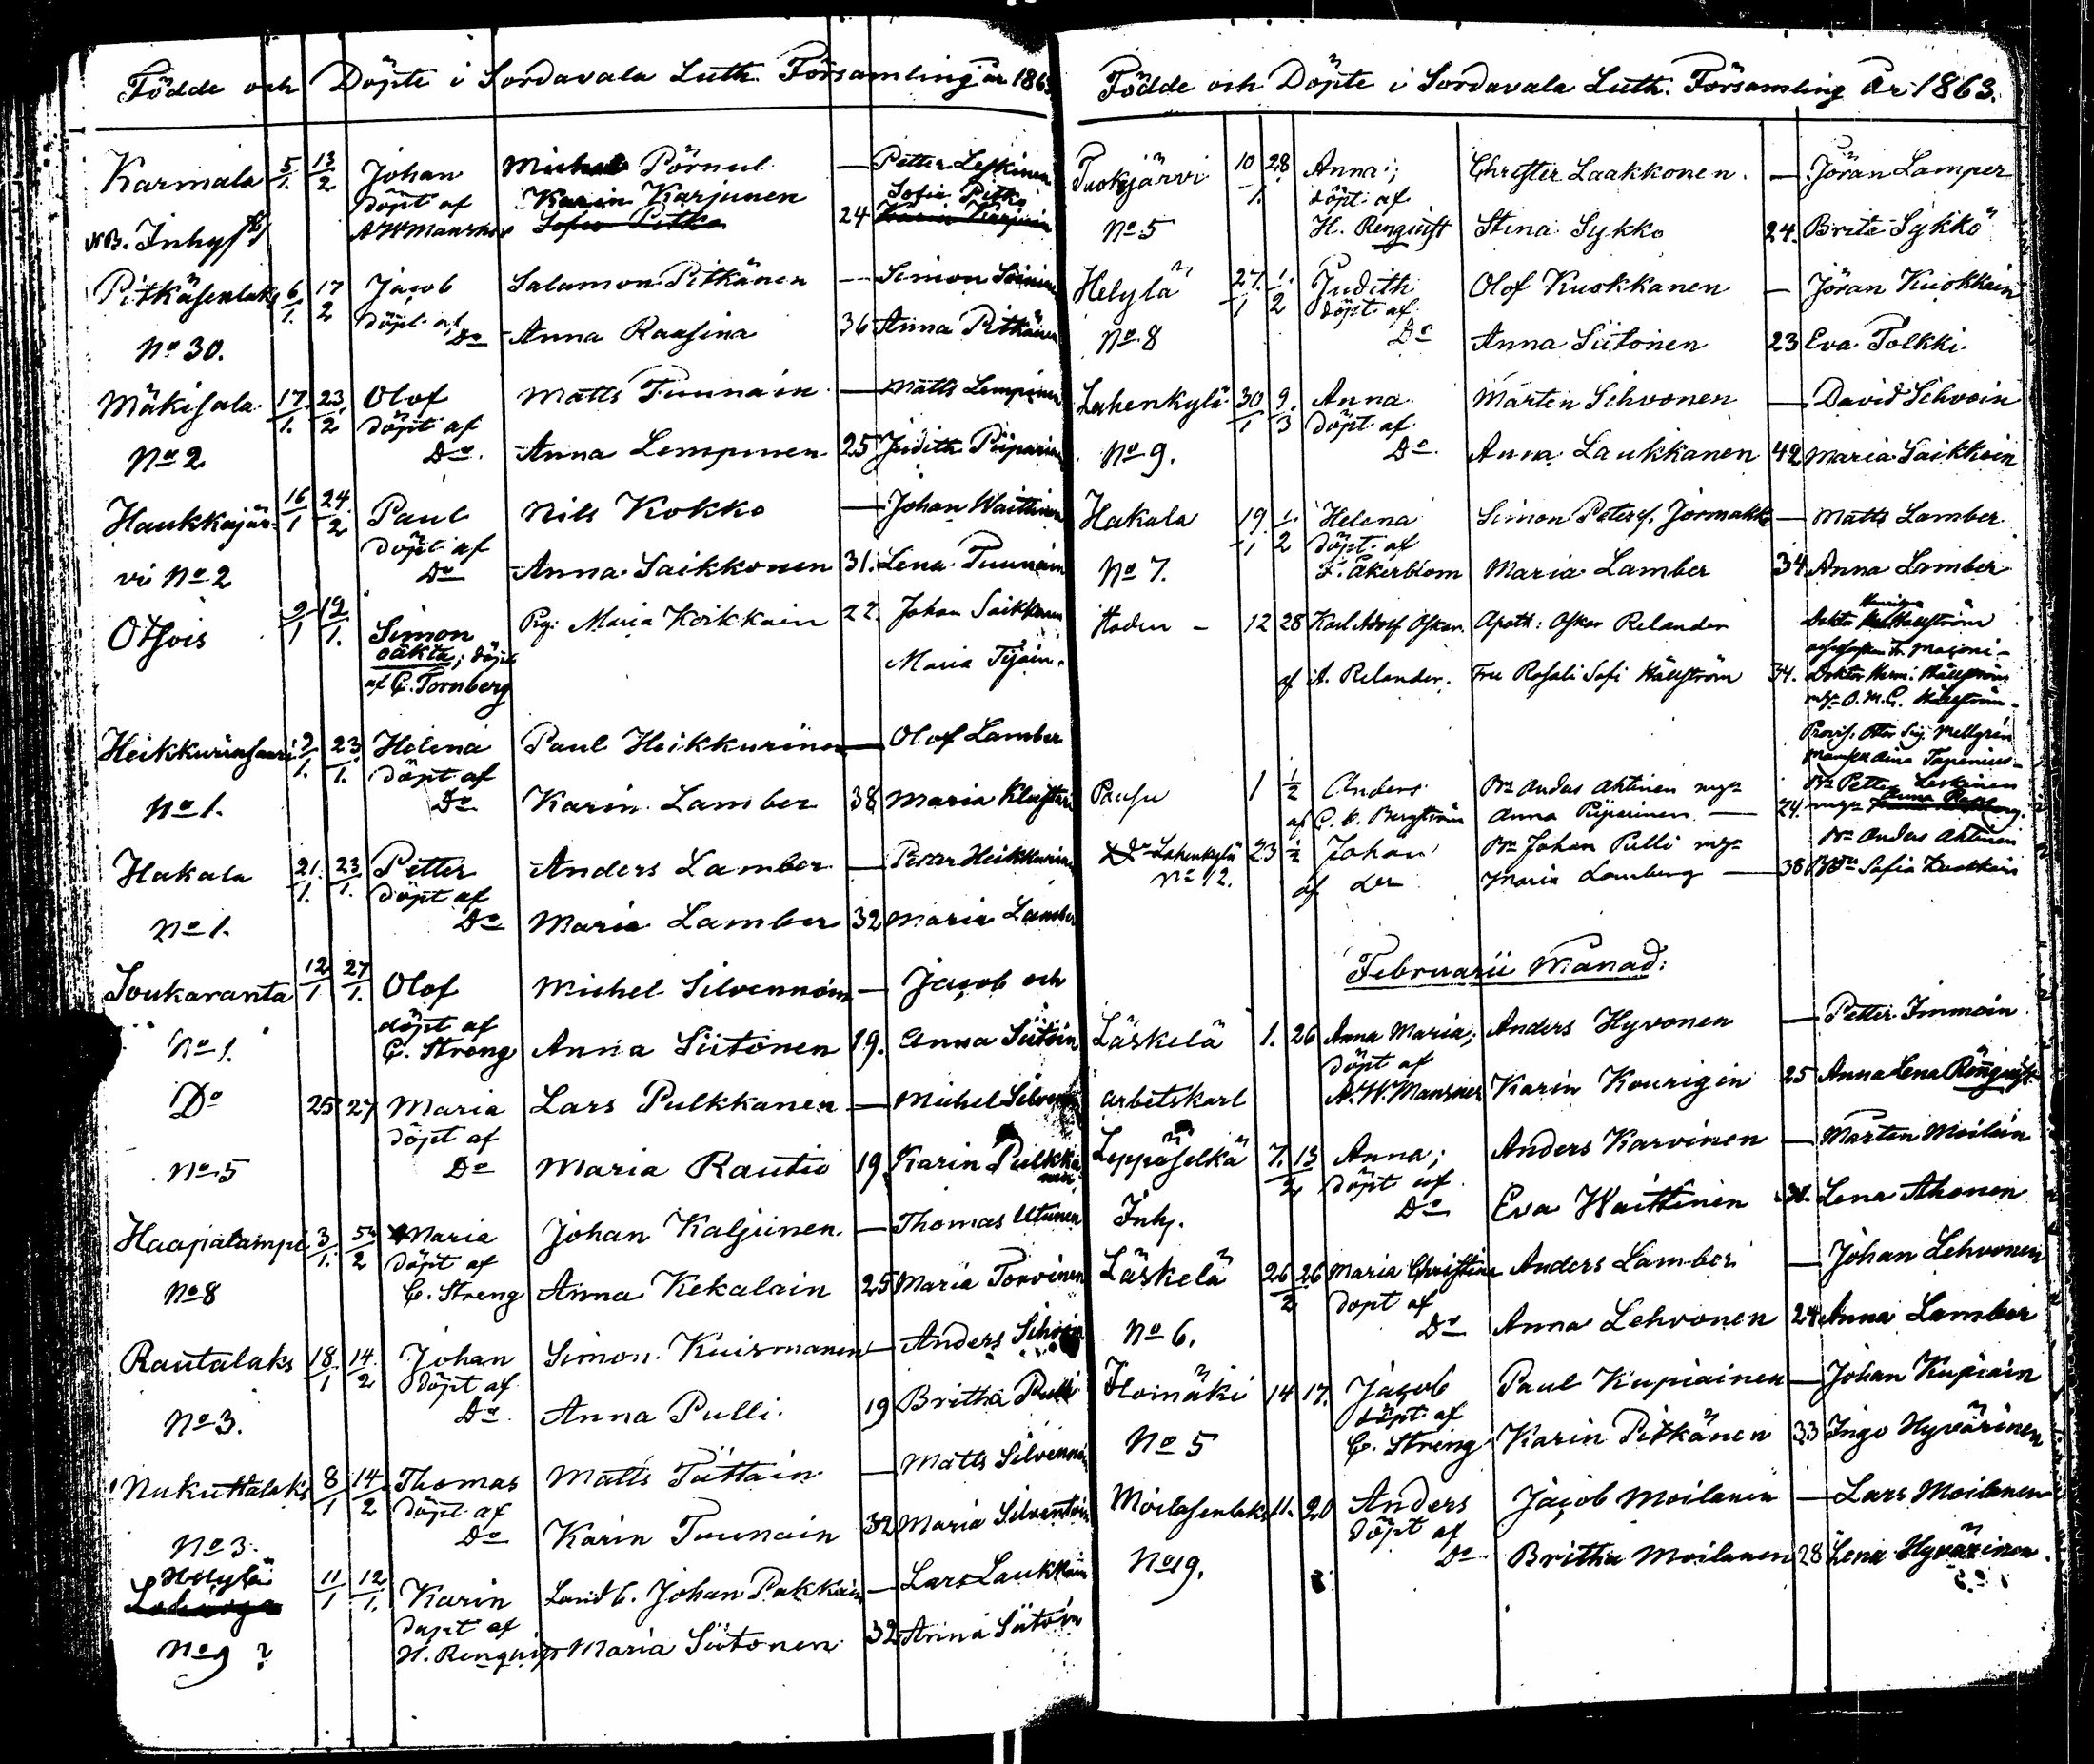 Födde och Döpte i Sordavala Luth. Församling år 1863
Karmala 5/1. 13/2 Johan Michel Pörnul — Petter Leskinen
döpt af Karin Karjunen Sofia Pitko
NB. Inhys A. W. Mansner Sofia Pitko 24
Pitkäsenlaks 6/1. 17/2 Jacob Salamon Pitkänen — Simon Soininen
No 30. döpt af Do Anna Raasina 36 Anna Pitkänen
Mäkisala 17/1. 23/2 Olof Matts Tuunain — Matts Lempinen
No 2 döpt af Do. Anna Lempinen 25 Judith Piiparinen
Haukkajär- 16/1 24/2 Paul Nils Kokko — Johan Waittinen
vi No 2 döpt af Do Anna Saikkonen 31. Lena Tuunain
Otsois 9/1 19/1. Simon Pig: Maria Korkkain 22. Johan Saikkonen
oäkta; döpt Maria
af C. Tornberg
Heikkurinsaari 9/1. 23/1. Helena Paul Heikkurinen — Olof Lamber
No 1. döpt af Do Karin Lamber 38 Maria
Hakala 21/1. 23/1. Petter Anders Lamber — Petter Heikkurinen
No 1. döpt af Do Maria Lamber 32 Maria Lamber
Soukaranta 12/1 27/1. Olof Michel Silvennoin — Jacob och
No 1. döpt af
C. Streng Anna Siitonen 19. Anna Siitoin
Do 25 27 Maria Lars Pulkkanen — Michel
No 5 döpt af Do Maria Rautio 19. Karin Pulkka
nen
Haapalampi 3/1. 5/2 Maria Johan Kaljunen — Thomas Utunen
No 8 döpt af
C. Streng Anna Kekalain 25 Maria Torvinen
Rautalaks 18/1 14/2 Johan Simon Kuismanen — Anders
No 3. döpt af Do. Anna Pulli 19 Britha Pulli
Nukuttalaks 8/1 14/2 Thomas Matts Tiittain — Matts Silvennoin
No 3. döpt af Do Karin Tuunain 32 Maria
Helylä
11/1 12/1. Karin Landb. Johan Pakkain — Lars Laukkain
No 9 ? döpt af
H. Renqvist Maria Siitonen 32 Anna Siitoin
Födde och Döpte i Sordavala Luth. Församling År 1863.
Tuokjärvi 10/1. 28 Anna; Christer Laakkonen. — Jöran Lamper
No 5 döpt af
H. Renquist Stina Sykko 24. Brita Sykkö
Helylä 27/1 1./2 Judith Olof Kuokkanen — Jöran Kuokkain
No 8 döpt af Do Anna Siitonen 23 Eva Tolkki
Lahenkylä 30/1 9./3 Anna Mårten Sihvonen — David Sihvoin
No 9. döpt af Do. Anna Laukkanen 42 Maria Saikkoin
Hakala 19/1 1./2 Helena Simon Petersf. Jormakka — Matts Lamber
No 7. döpt af
F. Åkerblom Maria Lamber 34 Anna Lamber
Staden — 12 28 Karl Adolf Oskar. Apoth: Oskar Relander Doktor Hällström
af A. Relander. Fru Rosali Sofi Hällström 34. Doktor Herm: Hällström
O. M. C. Hällström
Provis. Otto Sig. Mellgren
Mamsell Aina
Pausu 1 1/2 Anders Bn Anders Ahtinen — Bn Petter Leskinen
af C. G. Bergström Anna Piiparinen — 24.
Do Lahenkylä 23 1/2 Johan Bn Johan Pulli — Bn Anders Ahtinen
No 12. af do Maria Lamberg — 38 Sofia Kuokkain
Februarii Månad:
Läskelä 1. 26 Anna Maria; Anders Hyvonen — Petter Immoin
döpt af
arbetskarl A. W. Mansner Karin Kourigin 25 Anna Lena Renquist
Leppäselkä 7./2 13 Anna; Anders Karvinen — Mårten Moilain
Inh. döpt af Do Eva Waittinen Lena Ahonen
Läskelä 26/2 26 Maria Christina Anders Lamber — Johan Lehvonen
No 6. döpt af Do Anna Lehvonen 24 Anna Lamber
Ilomäki 14 17. Jacob Paul Kupiainen — Johan Kupiain
No 5 döpt af
C. Streng Karin Pitkänen 33 Inga Hyvärinen
Moilasenlaks 11. 20 Anders Jacob Moilanen — Lars Moilanen
No 19. döpt af Do Britha Moilanen 28 Lena Hyvärinen.